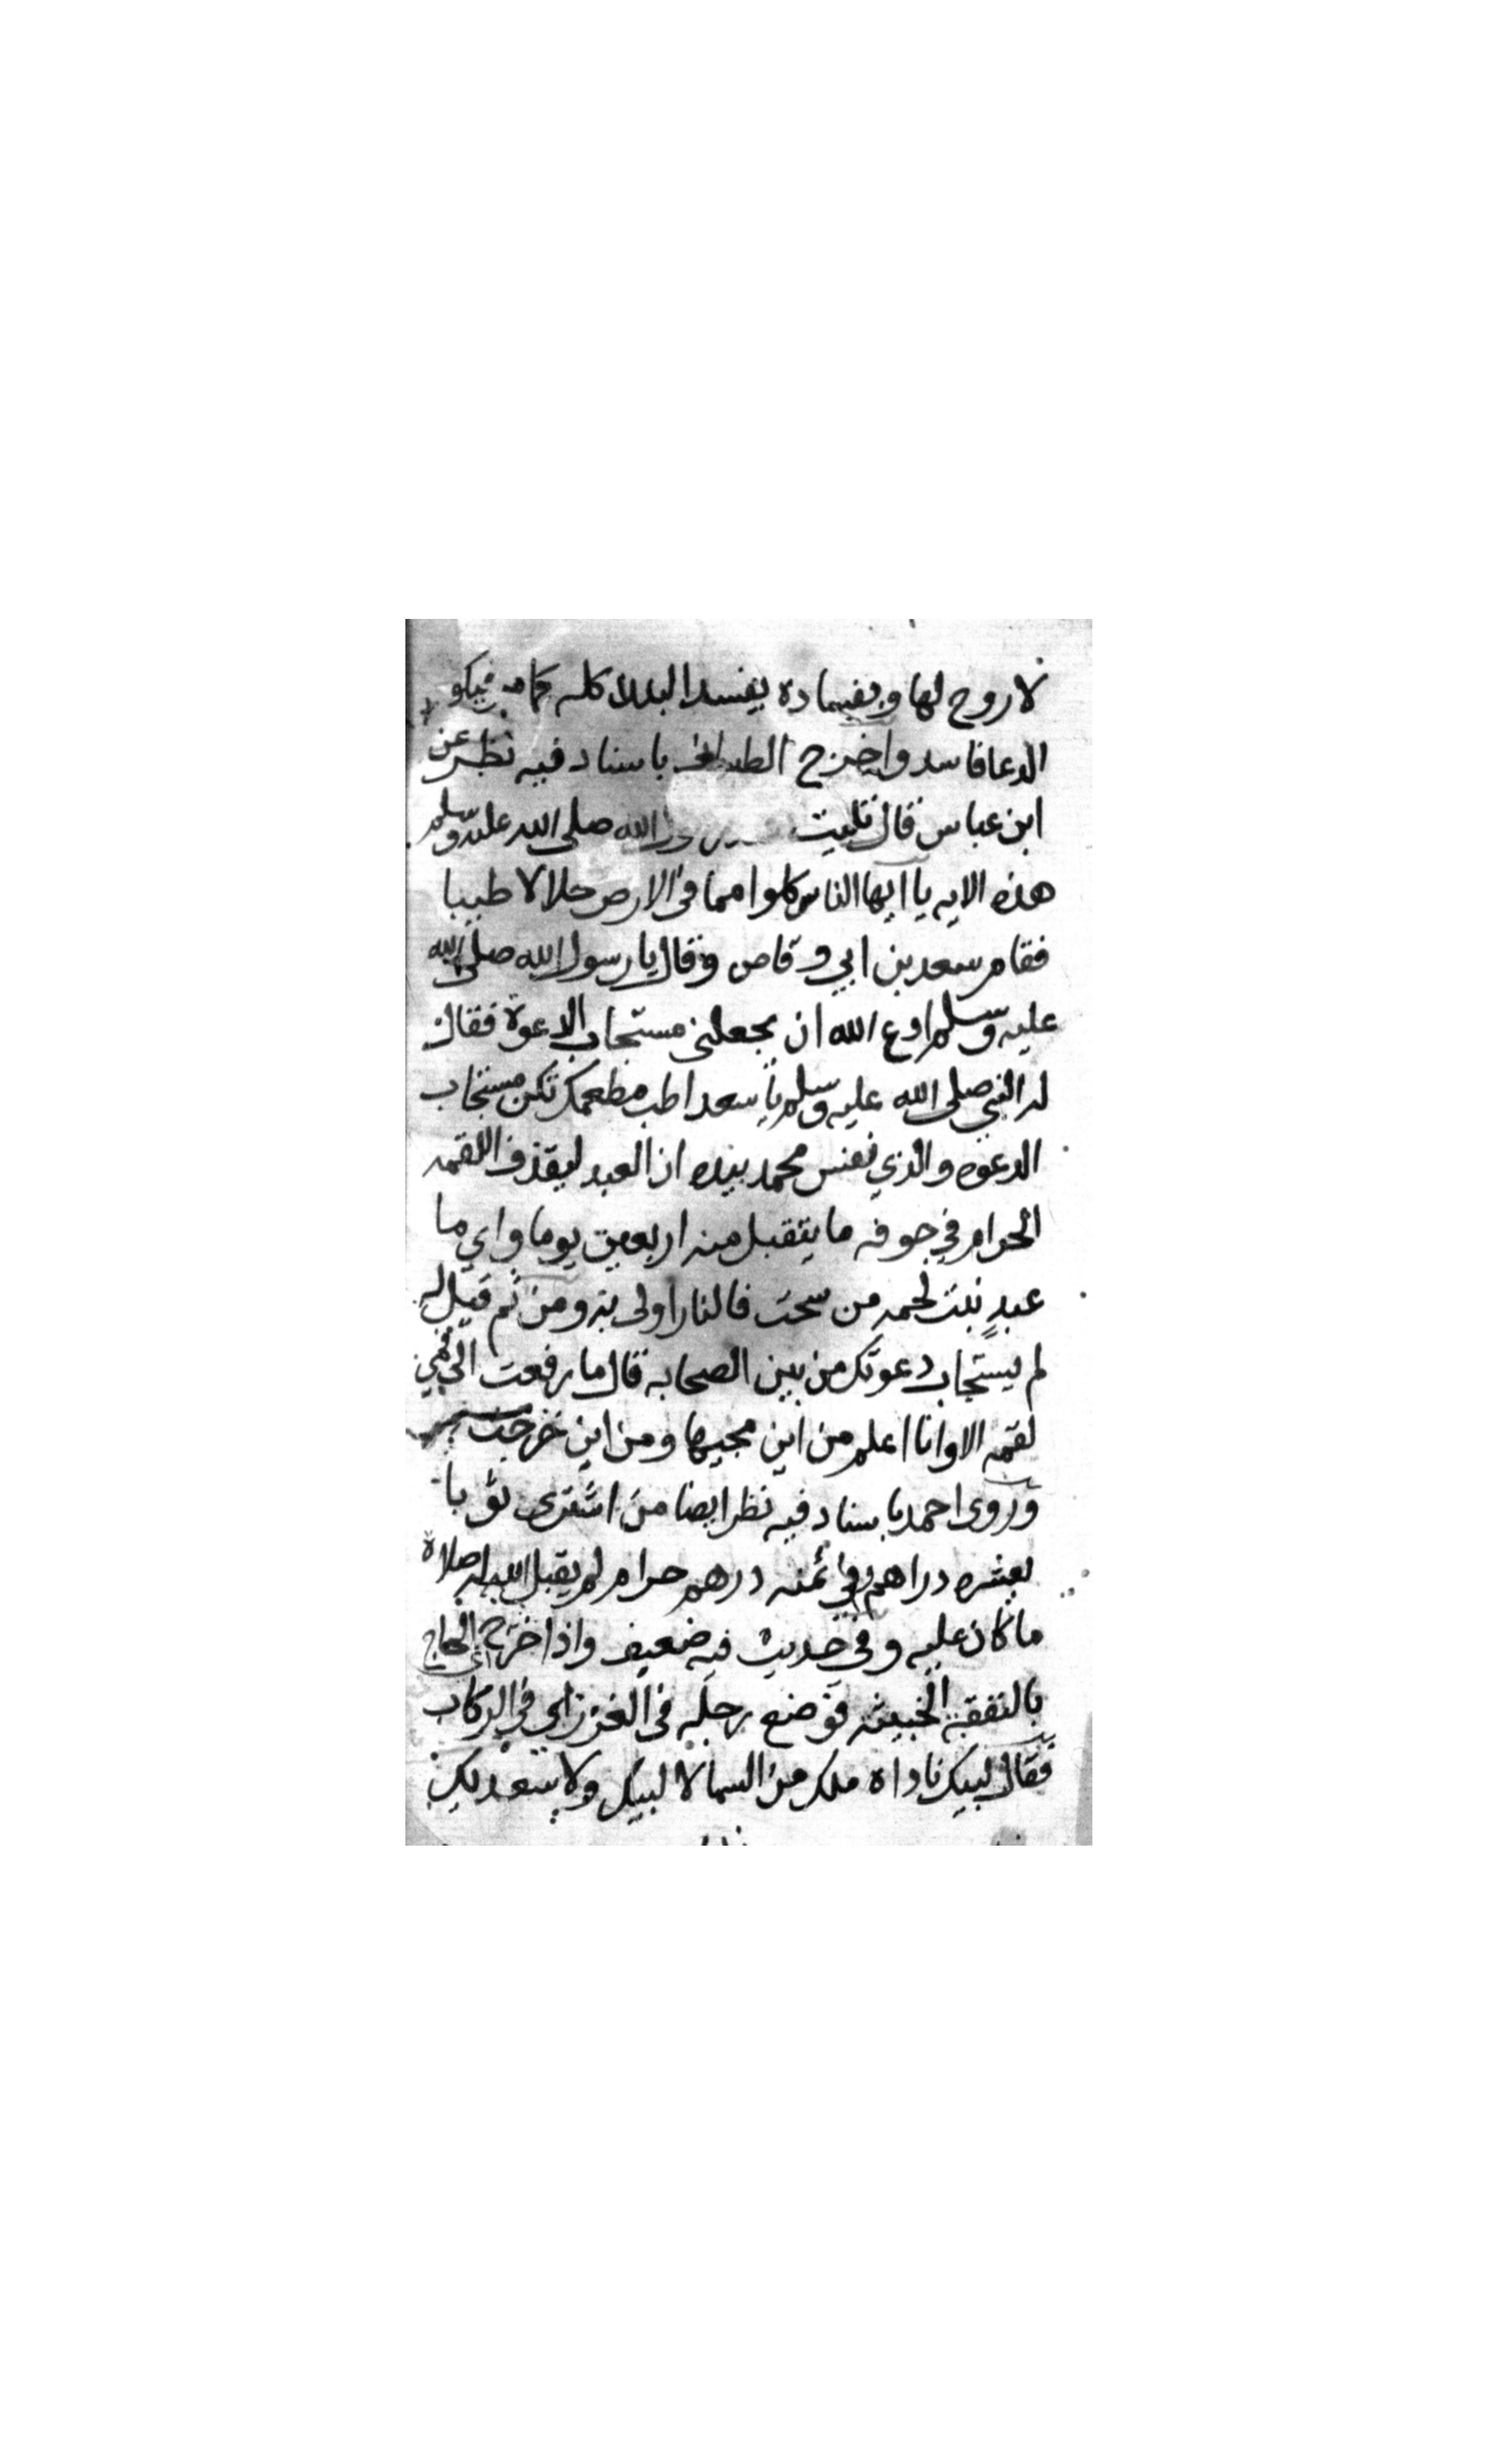 لا روح لها وبفساده يفسد البدن كله كما مر فيكو
الدعا فاسد واخرج الطبراني باسناد فيه نظر عن
ابن عباس قال تليت الله صلى الله عليه وسلم
هذه الايه يا ايها الناس كلوا مما في الارض حلالا طيبا
فقام سعد بن ابي وقاص وقال يا رسول الله صلى الله
عليه وسلم ادع الله ان يجعلني مستجاب الدعوة فقال
له النبي صلى الله عليه وسلم يا سعد اطب مطعمك تكن مستجاب
الدعوه والذي نفس محمد بيده ان العبد ليقذف اللقمه
الحرام في جوفه ما يتقبل منه اربعين يوما واي ما
عبدٍ نبت لحمه من سحت فالنار اولى به ومن ثم قيل له
لم يستجاب دعوتك من بين الصحابه قال ما رفعت الى فمي
لقمه الا وانا اعلم من اين مجيها ومن اين خرجت
وروى احمد باسناد فيه نظر ايضا من اشترى ثوبا
بعشره دراهم وفي ثمنه درهم حرام لم يقبل الله له صلاة
ما كان عليه وفي حديث فيه ضعيف واذا خرج الحاج
بالنفقه الخبيثه فوضع رجله في الغرز اي في الركاب
فقال لبيك ناداه ملك من السما لا لبيك ولا سعديك